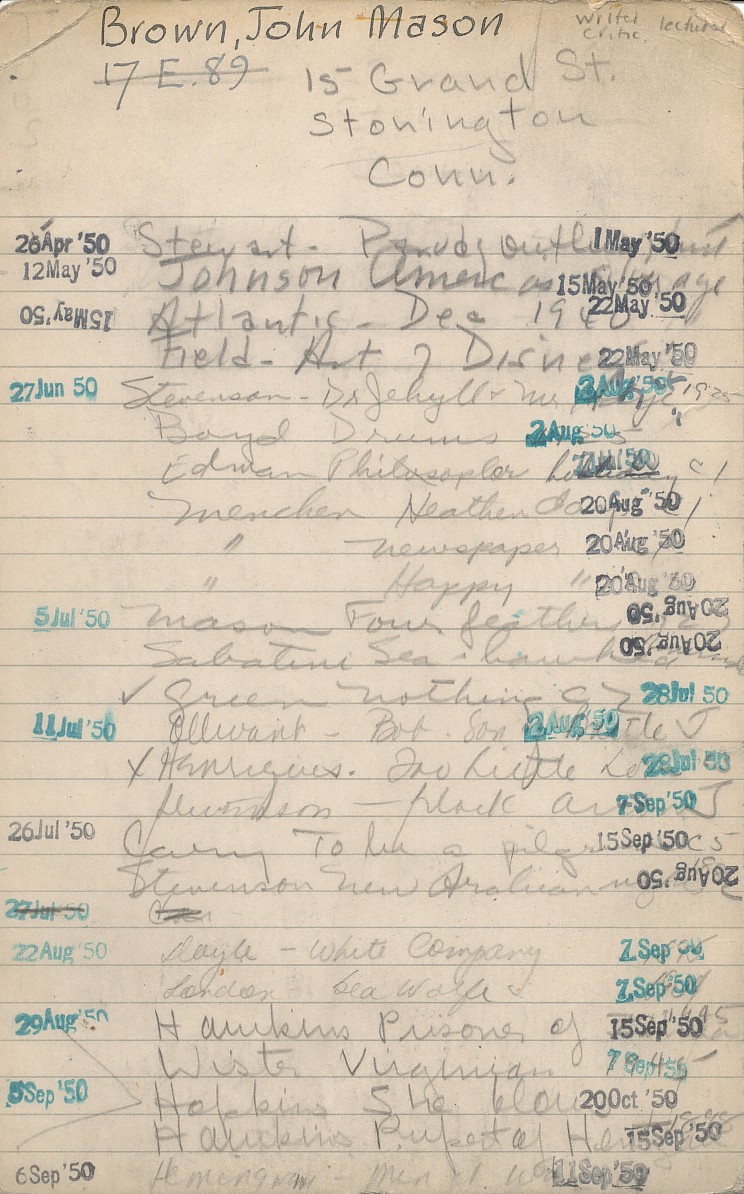 Brown, John Mason
writer lecturer
critic
17 E. 89 15 Grand St.
Stonington
Conn.
26 Apr '50 Stewart - 1 May '50
12 May '50 Johnson America 15 May '50
15 May '50 Atlantic - Dec 1940 22 May '50
Field - Art of Disney 22 May '50
27 Jun 50 Stevenson - Dr Jekyll & Mr 2 Aug '50
Boyd Drums 2 Aug '50
Edman Philosopher holiday C1
Mencken Heathen 20 Aug '50
" newspaper 20 Aug '50
" Happy " 20 Aug '50
5 Jul '50 Mason Four feathers 20 Aug '50
Sabatini Sea-hawk 20 Aug '50
✓ Green Nothing 28 Jul 50
11 Jul '50 Ollivant - Bob. Son Battle J 2 Aug '50
X Henriques. Too Little Lo 28 Jul 50
Stevenson - black arrow J 7 Sep '50
26 Jul '50 Cary To be a pilgrim 15 Sep '50
Stevenson New Arabian nights 20 Aug '50
27 Jul 50
22 Aug '50 Doyle - White Company 7 Sep
London - Sea Wolf 7 Sep '50
29 Aug '50 Hawkins Prisoner of 15 Sep '50
Wister Virginian 7 Sep '50
5 Sep '50 Hopkins She blows 20 Oct '50
Hawkins Rupert of Hentzau 15 Sep '50
6 Sep '50 Hemingway Men at war 11 Sep '50